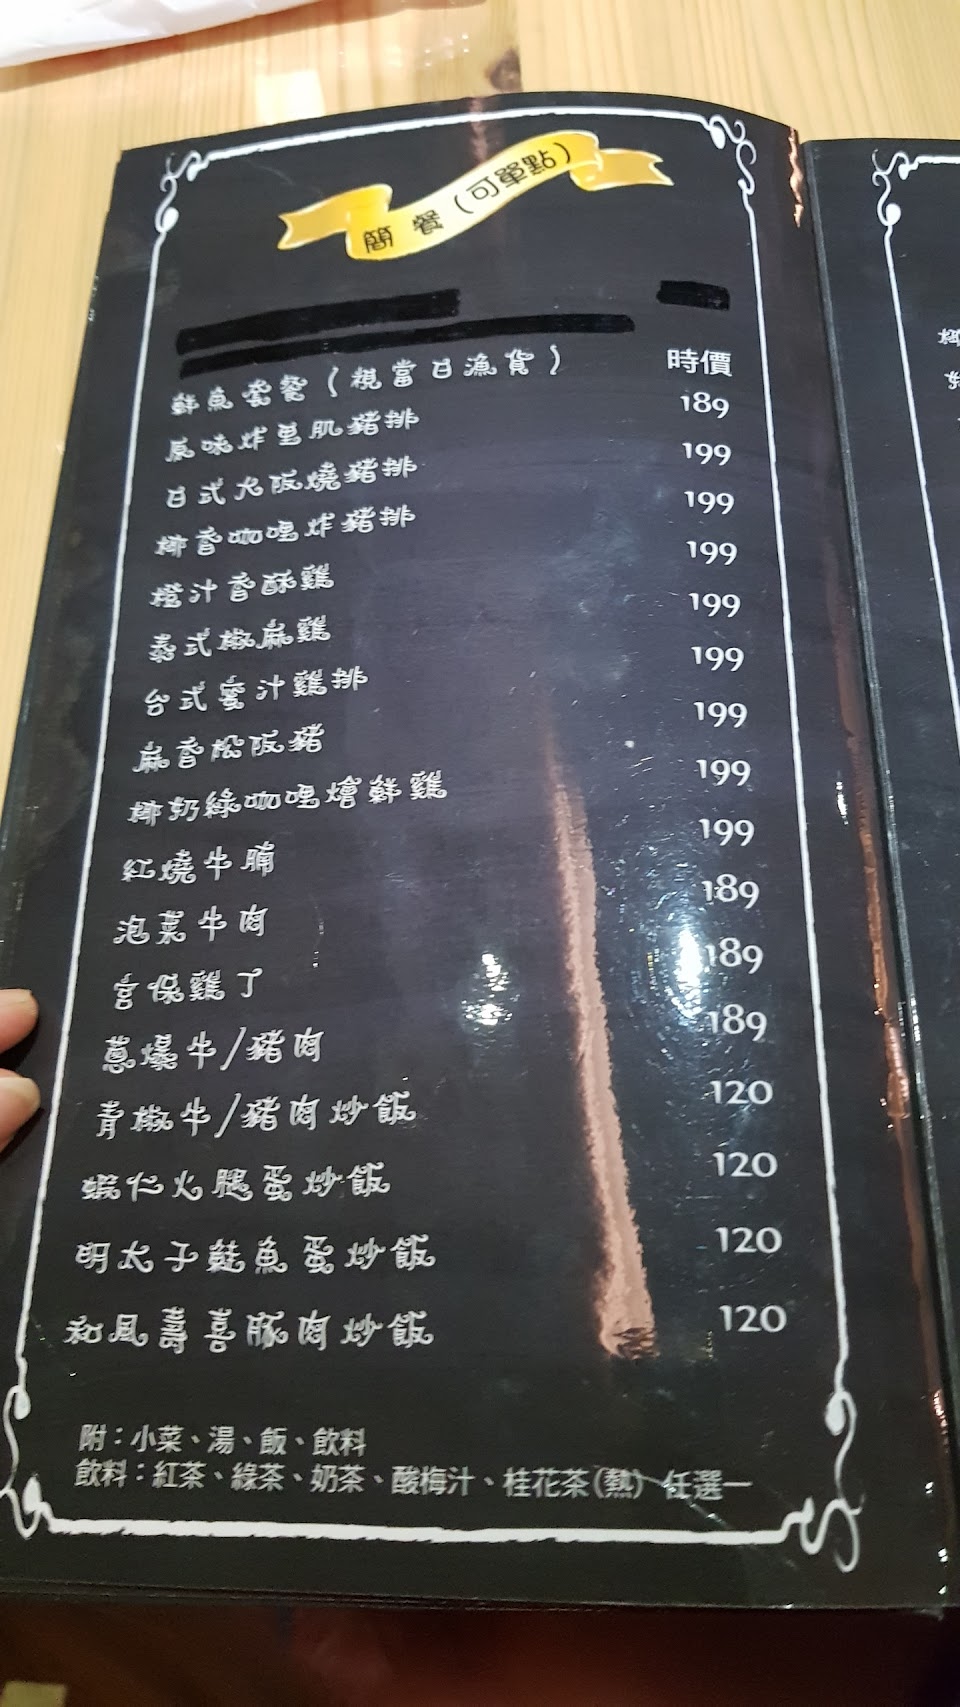 簡餐(可單點)
鮮魚套餐(視當日漁貨) 時價
原味炸里肌豬排 189
日式大阪燒豬排 199
椰香咖哩炸豬排 199
橙汁香酥雞 199
泰式椒麻雞 199
台式蜜汁雞排 199
麻香松阪豬 199
椰奶綠咖哩燴鮮雞 199
紅燒牛腩 199
泡菜牛肉 189
宮保雞丁 189
蔥爆牛/豬肉 189
青椒牛/豬肉炒飯 120
蝦仁火腿蛋炒飯 120
明太子鮭魚蛋炒飯 120
和風壽喜豚肉炒飯 120
附:小菜、湯、飯、飲料
飲料:紅茶、綠茶、奶茶、酸梅汁、桂花茶(熱) 任選一